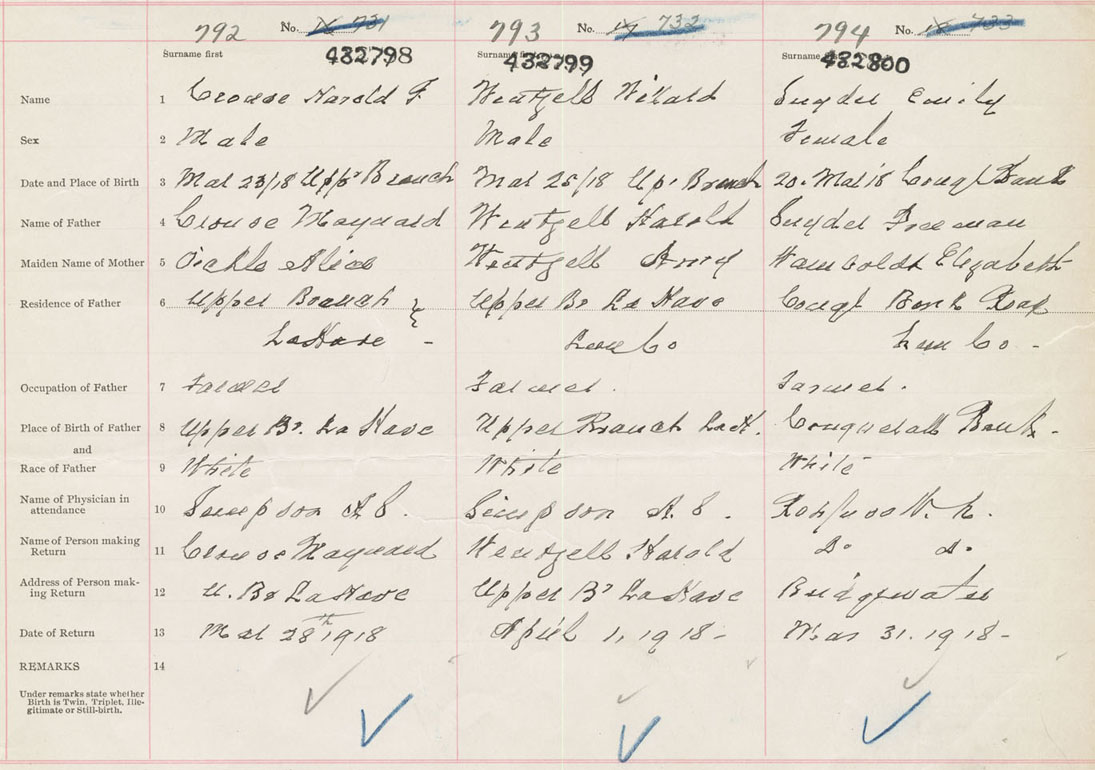 792 No. 731 793 No. 732 794 No. 733
Surname first 432798 Surname 432799 Surname 432800
Name 1 Crouse Harold F Wentzell Willard Snyder Emily
Sex 2 Male Male Female
Date and Place of Birth 3 Mar 23/18 Upp. Branch Mar 25/18 Up. Branch 20. Mar 18 Conql Bank
Name of Father 4 Crouse Maynard Wentzell Harold Snyder Freeman
Maiden Name of Mother 5 Alice Wentzell Elizabeth
Residence of Father 6 Upper Branch Upper Br La Have Bank
LaHave - Lun Co Lun Co -
Occupation of Father 7 Farmer Farmer . Farmer .
Place of Birth of Father 8 Upper Br. La Have Upper Branch LaH. Conquerall Bank -
and
Race of Father 9 White White White
Name of Physician in
attendance 10 Simpson A.E. Simpson A.E.
Name of Person making
Return 11 Crouse Maynard Wentzell Harold Do Do
Address of Person mak-
ing Return 12 U. Br LaHave Upper Br LaHave Bridgewater
Date of Return 13 Mar 28th 1918 April 1, 1918 - Mar 31. 1918 -
REMARKS 14
Under remarks state whether
Birth is Twin, Triplet, Ille-
gitimate or Still-birth.